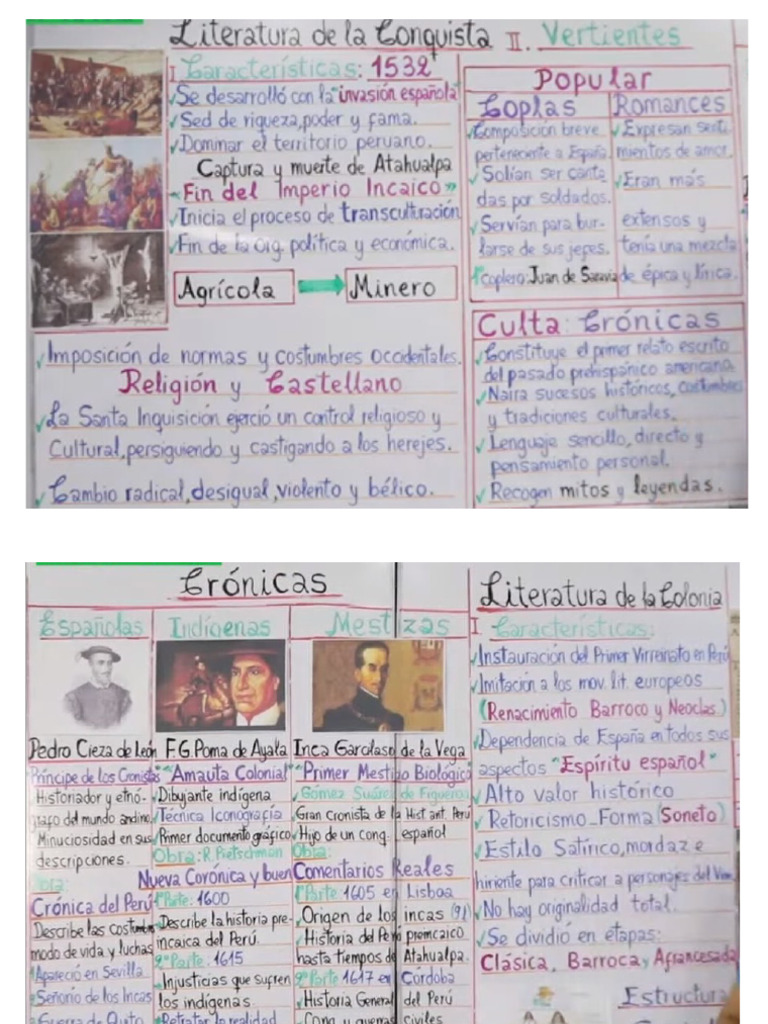 Literatura de la Conquista II. Vertientes
I Características: 1532
✓Se desarrolló con la "invasión española"
✓Sed de riqueza, poder y fama.
✓Dominar el territorio peruano.
Captura y muerte de Atahualpa
"Fin del Imperio Incaico"
✓Inicia el proceso de transculturación
✓Fin de la org. política y económica.
Agrícola → Minero
✓Imposición de normas y costumbres occidentales.
Religión y Castellano
✓La Santa Inquisición ejerció un control religioso y
Cultural, persiguiendo y castigando a los herejes.
✓Cambio radical, desigual, violento y bélico.
Popular
Coplas
✓Composición breve
perteneciente a España.
✓Solían ser canta
das por soldados.
✓Servían para bur-
larse de sus jefes.
1° Coplero: Juan de Saravia
Romances
✓Expresan senti
mientos de amor.
✓Eran más
extensos y
tenía una mezcla
de épica y lírica.
Culta: Crónicas
✓Constituye el primer relato escrito
del pasado prehispánico americano
✓Narra sucesos históricos, costumbres
y tradiciones culturales.
✓Lenguaje sencillo, directo y
pensamiento personal.
✓Recogen mitos y leyendas.
Crónicas
Españolas
Pedro Cieza de León
Príncipe de los Cronistas
Historiador y etnó-
grafo del mundo andino.
Minuciosidad en sus
descripciones.
Obra:
Crónica del Perú
Describe las costumbres
modo de vida y luchas
Apareció en Sevilla
✓Señorío de los Incas
✓Guerra de Quito
Indígenas
F.G. Poma de Ayala
"Amauta Colonial"
✓Dibujante indígena
✓Técnica Iconografía
✓Primer documento gráfico
Obra: R. Pietschman
Nueva Corónica y buen
1° Parte: 1600
✓Describe la historia pre-
incaica del Perú.
2° Parte: 1615
✓Injusticias que sufren
los indígenas.
✓Retratar la realidad
Mestizas
Inca Garcilaso de la Vega
"Primer Mestizo Biológico"
✓Gómez Suárez de Figueroa
Gran cronista de la Hist ant. Perú
✓Hijo de un conq. español
Obra:
Comentarios Reales
1° Parte 1605 en Lisboa
✓Origen de los incas (9L)
✓Historia del Perú preincaico
hasta tiempos de Atahualpa.
2° Parte 1617 en Córdoba
✓Historia General del Perú
✓Conq. y guerras civiles
Literatura de la Colonia
I. Características:
✓Instauración del Primer Virreinato en Perú
✓Imitación a los mov. lit. europeos
(Renacimiento Barroco y Neoclas.)
✓Dependencia de España en todos sus
aspectos "Espíritu español"
✓Alto valor histórico
✓Retoricismo-Forma (Soneto)
✓Estilo Satírico, mordaz e
hiriente para criticar a personajes del Virrei
✓No hay originalidad total.
✓Se dividió en etapas:
Clásica, Barroca y Afrancesada
Estructura